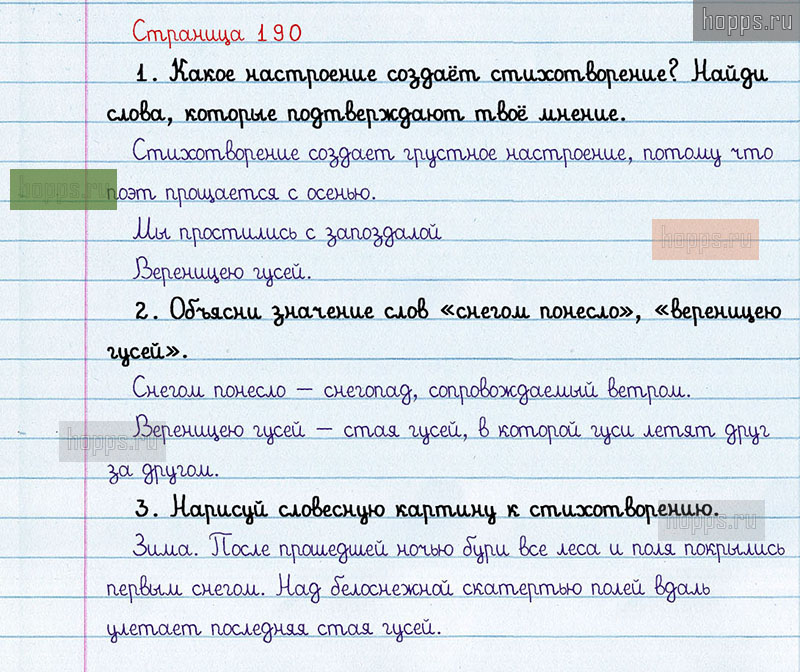 hopps.ru
Страница 190
1. Какое настроение создаёт стихотворение? Найди
слова, которые подтверждают твоё мнение.
Стихотворение создает грустное настроение, потому что
hopps.ru
поэт прощается с осенью.
Мы простились с запоздалой
hopps.ru
Вереницею гусей.
2. Объясни значение слов «снегом понесло», «вереницею
гусей».
Снегом понесло – снегопад, сопровождаемый ветром.
hopps.ru
Вереницею гусей – стая гусей, в которой гуси летят друг
за другом.
3. Нарисуй словесную картину к стихотворению.
hopps.ru
Зима. После прошедшей ночью бури все леса и поля покрылись
первым снегом. Над белоснежной скатертью полей вдаль
улетает последняя стая гусей.